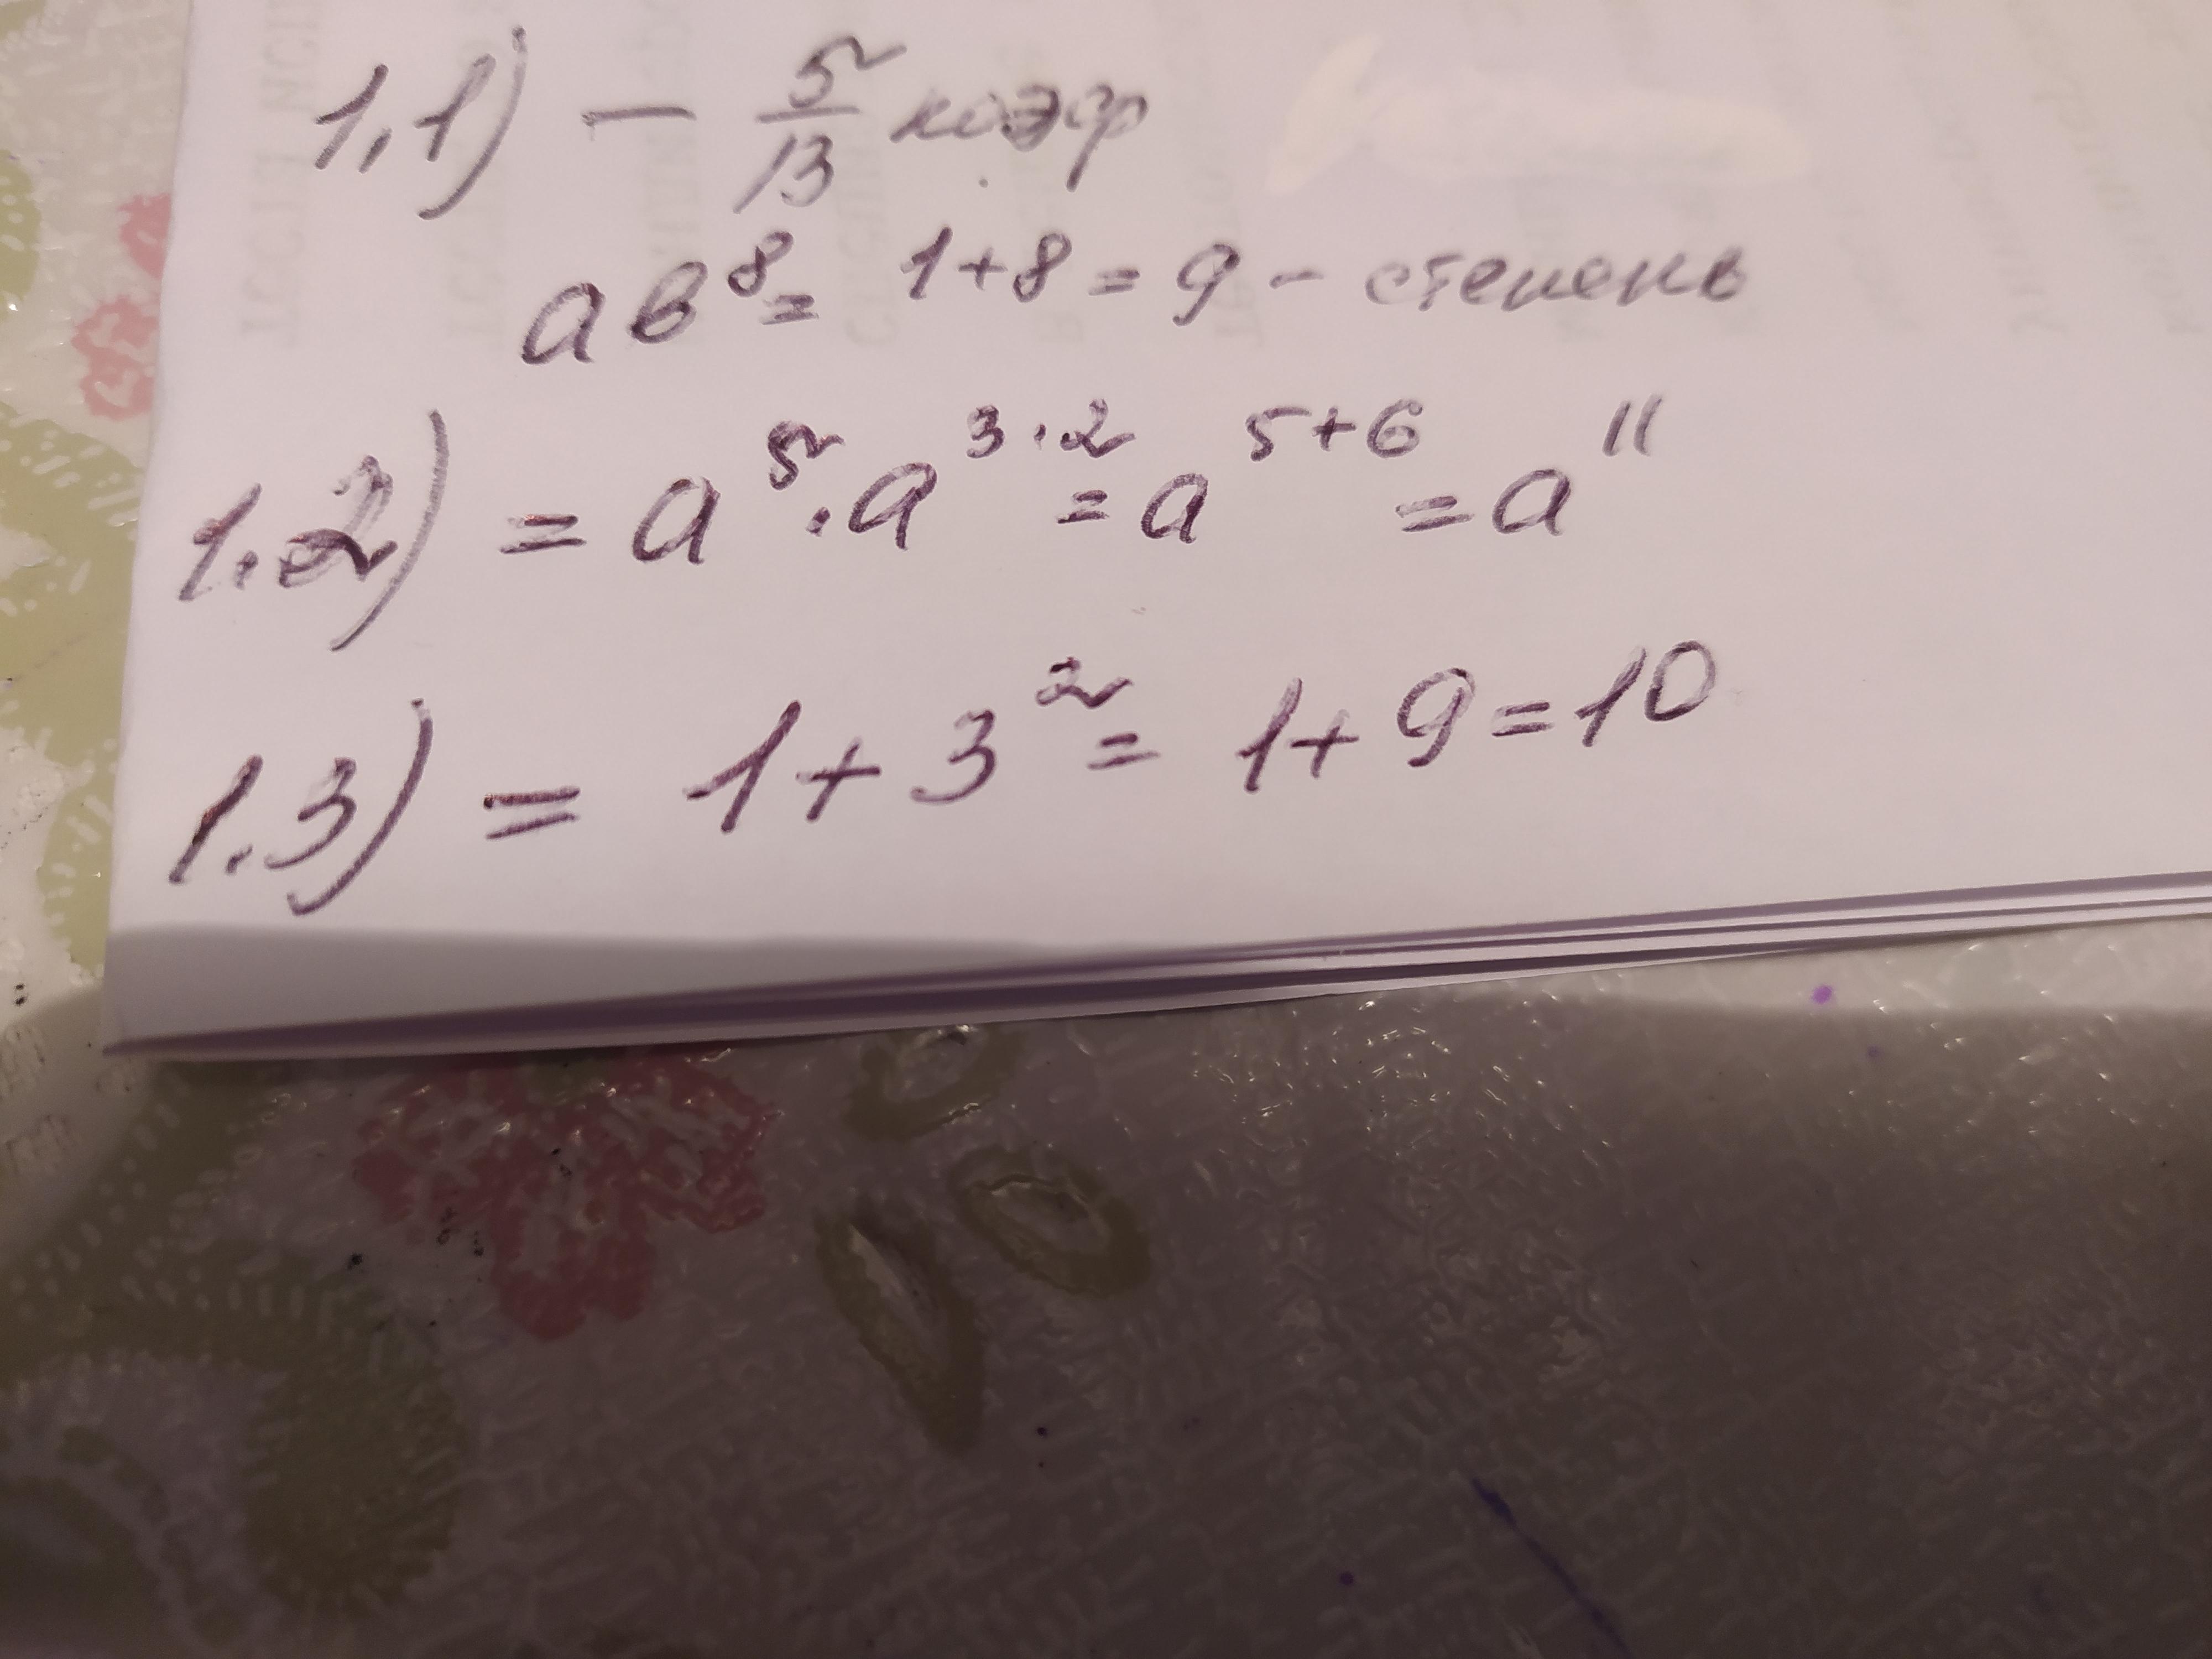 1,1) - 5/13 коэф
ав⁸ = 1+8 = 9 - степень
1.2) = a⁵ · a³·² = a⁵⁺⁶ = a¹¹
1.3) = 1 + 3² = 1 + 9 = 10